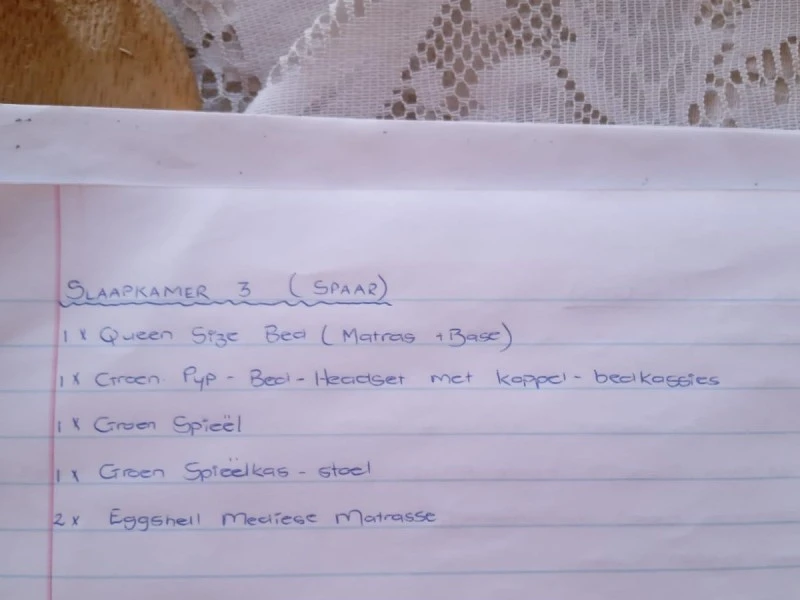 SLAAPKAMER 3 (SPAAR)
1 x Queen Size Bed (Matras + Base)
1 x Groen Pyp - Bed - Headset met koppel - bedkassies
1 x Groen Spieël
1 x Groen Spieëlkas - stoel
2 x Eggshell Mediese Matrasse